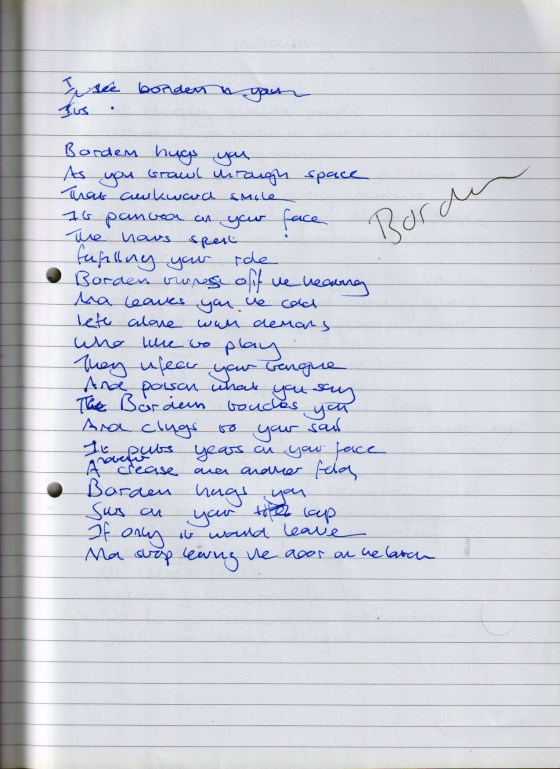 I see bordem in your
Its .
Bordem hugs you
As you trawl through space
That awkward smile
It painted on your face
The hours spent
fulfilling your role
Bordem turns off the heating
And leaves you the cold
left alone with demons
who like to play
They infect your tongue
And poison what you say
The Bordem touches you
And clings to your soul
It puts years on your face
Another
A crease and another fold
Bordem hugs you
Sits on your lap
If only it would leave
And stop leaving the door on the latch
Bordem